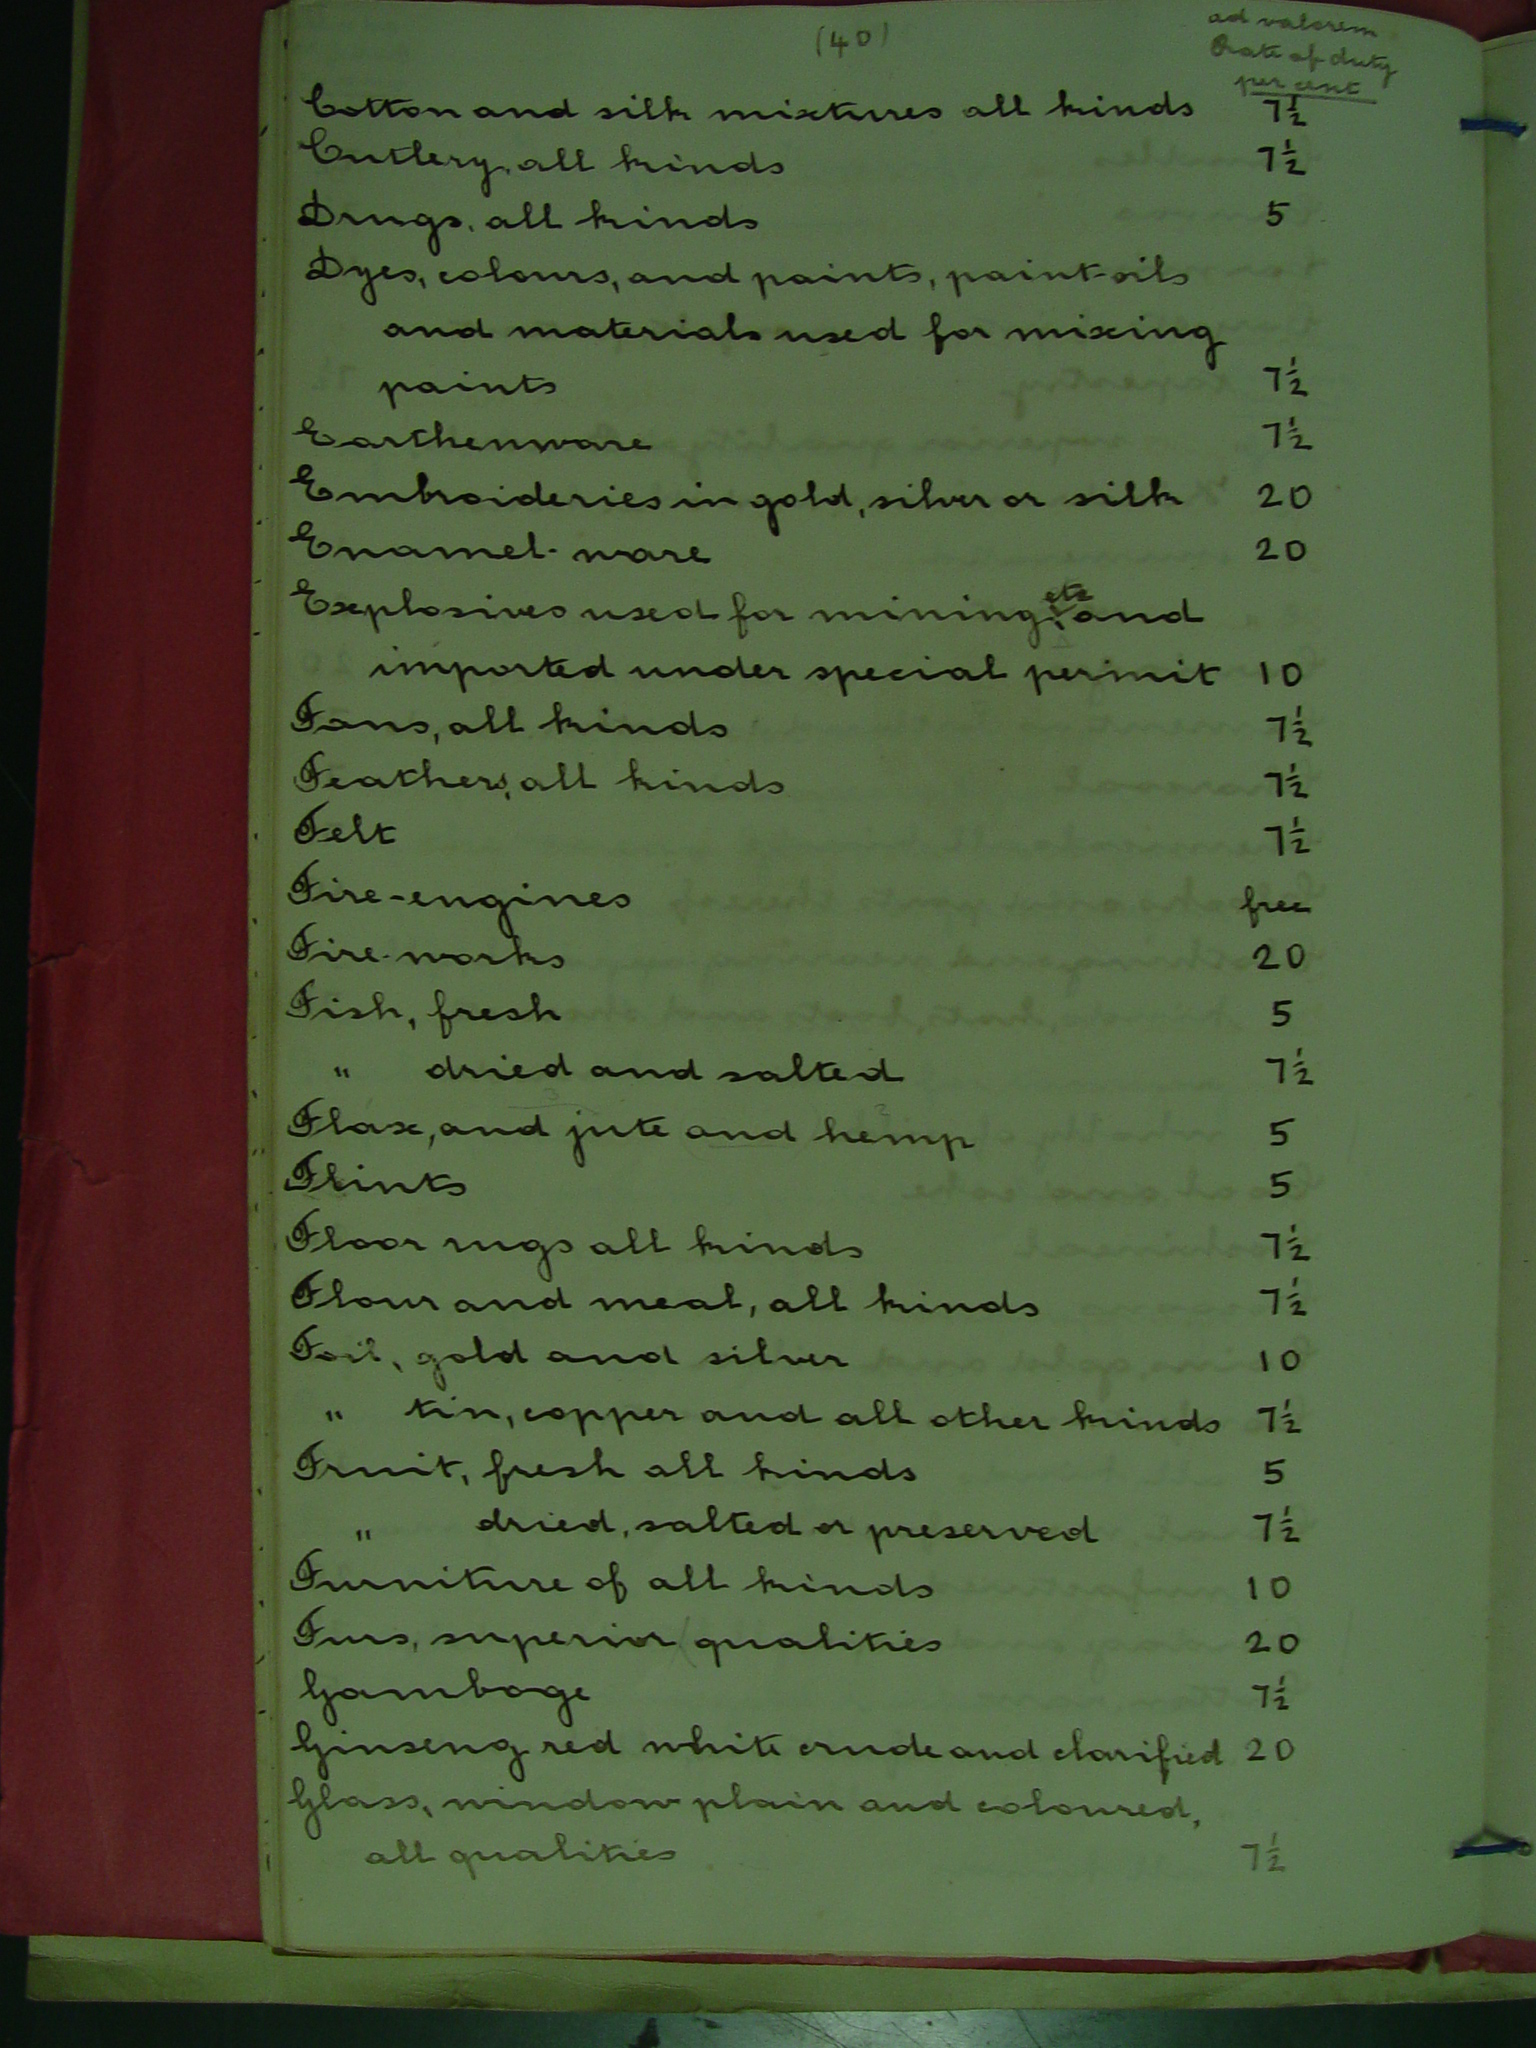 (40)
ad valorem
Rate of duty
per cent
Cotton and silk mixtures all kinds 7½
Cutlery, all kinds 7½
Drugs, all kinds 5
Dyes, colours, and paints, paint-oils
and materials used for mixing
paints 7½
Earthenware 7½
Embroideries in gold, silver or silk 20
Enamel-ware 20
Explosives used for mining etc and
imported under special permit 10
Fans, all kinds 7½
Feathers, all kinds 7½
Felt 7½
Fire-engines free
Fire-works 20
Fish, fresh 5
" dried and salted 7½
Flax, and jute and hemp 5
Flints 5
Floor rugs all kinds 7½
Flour and meal, all kinds 7½
Foil, gold and silver 10
" tin, copper and all other kinds 7½
Fruit, fresh all kinds 5
" dried, salted or preserved 7½
Furniture of all kinds 10
Furs, superior qualities 20
Gamboge 7½
Ginseng red white crude and clarified 20
Glass, window plain and coloured,
all qualities 7½